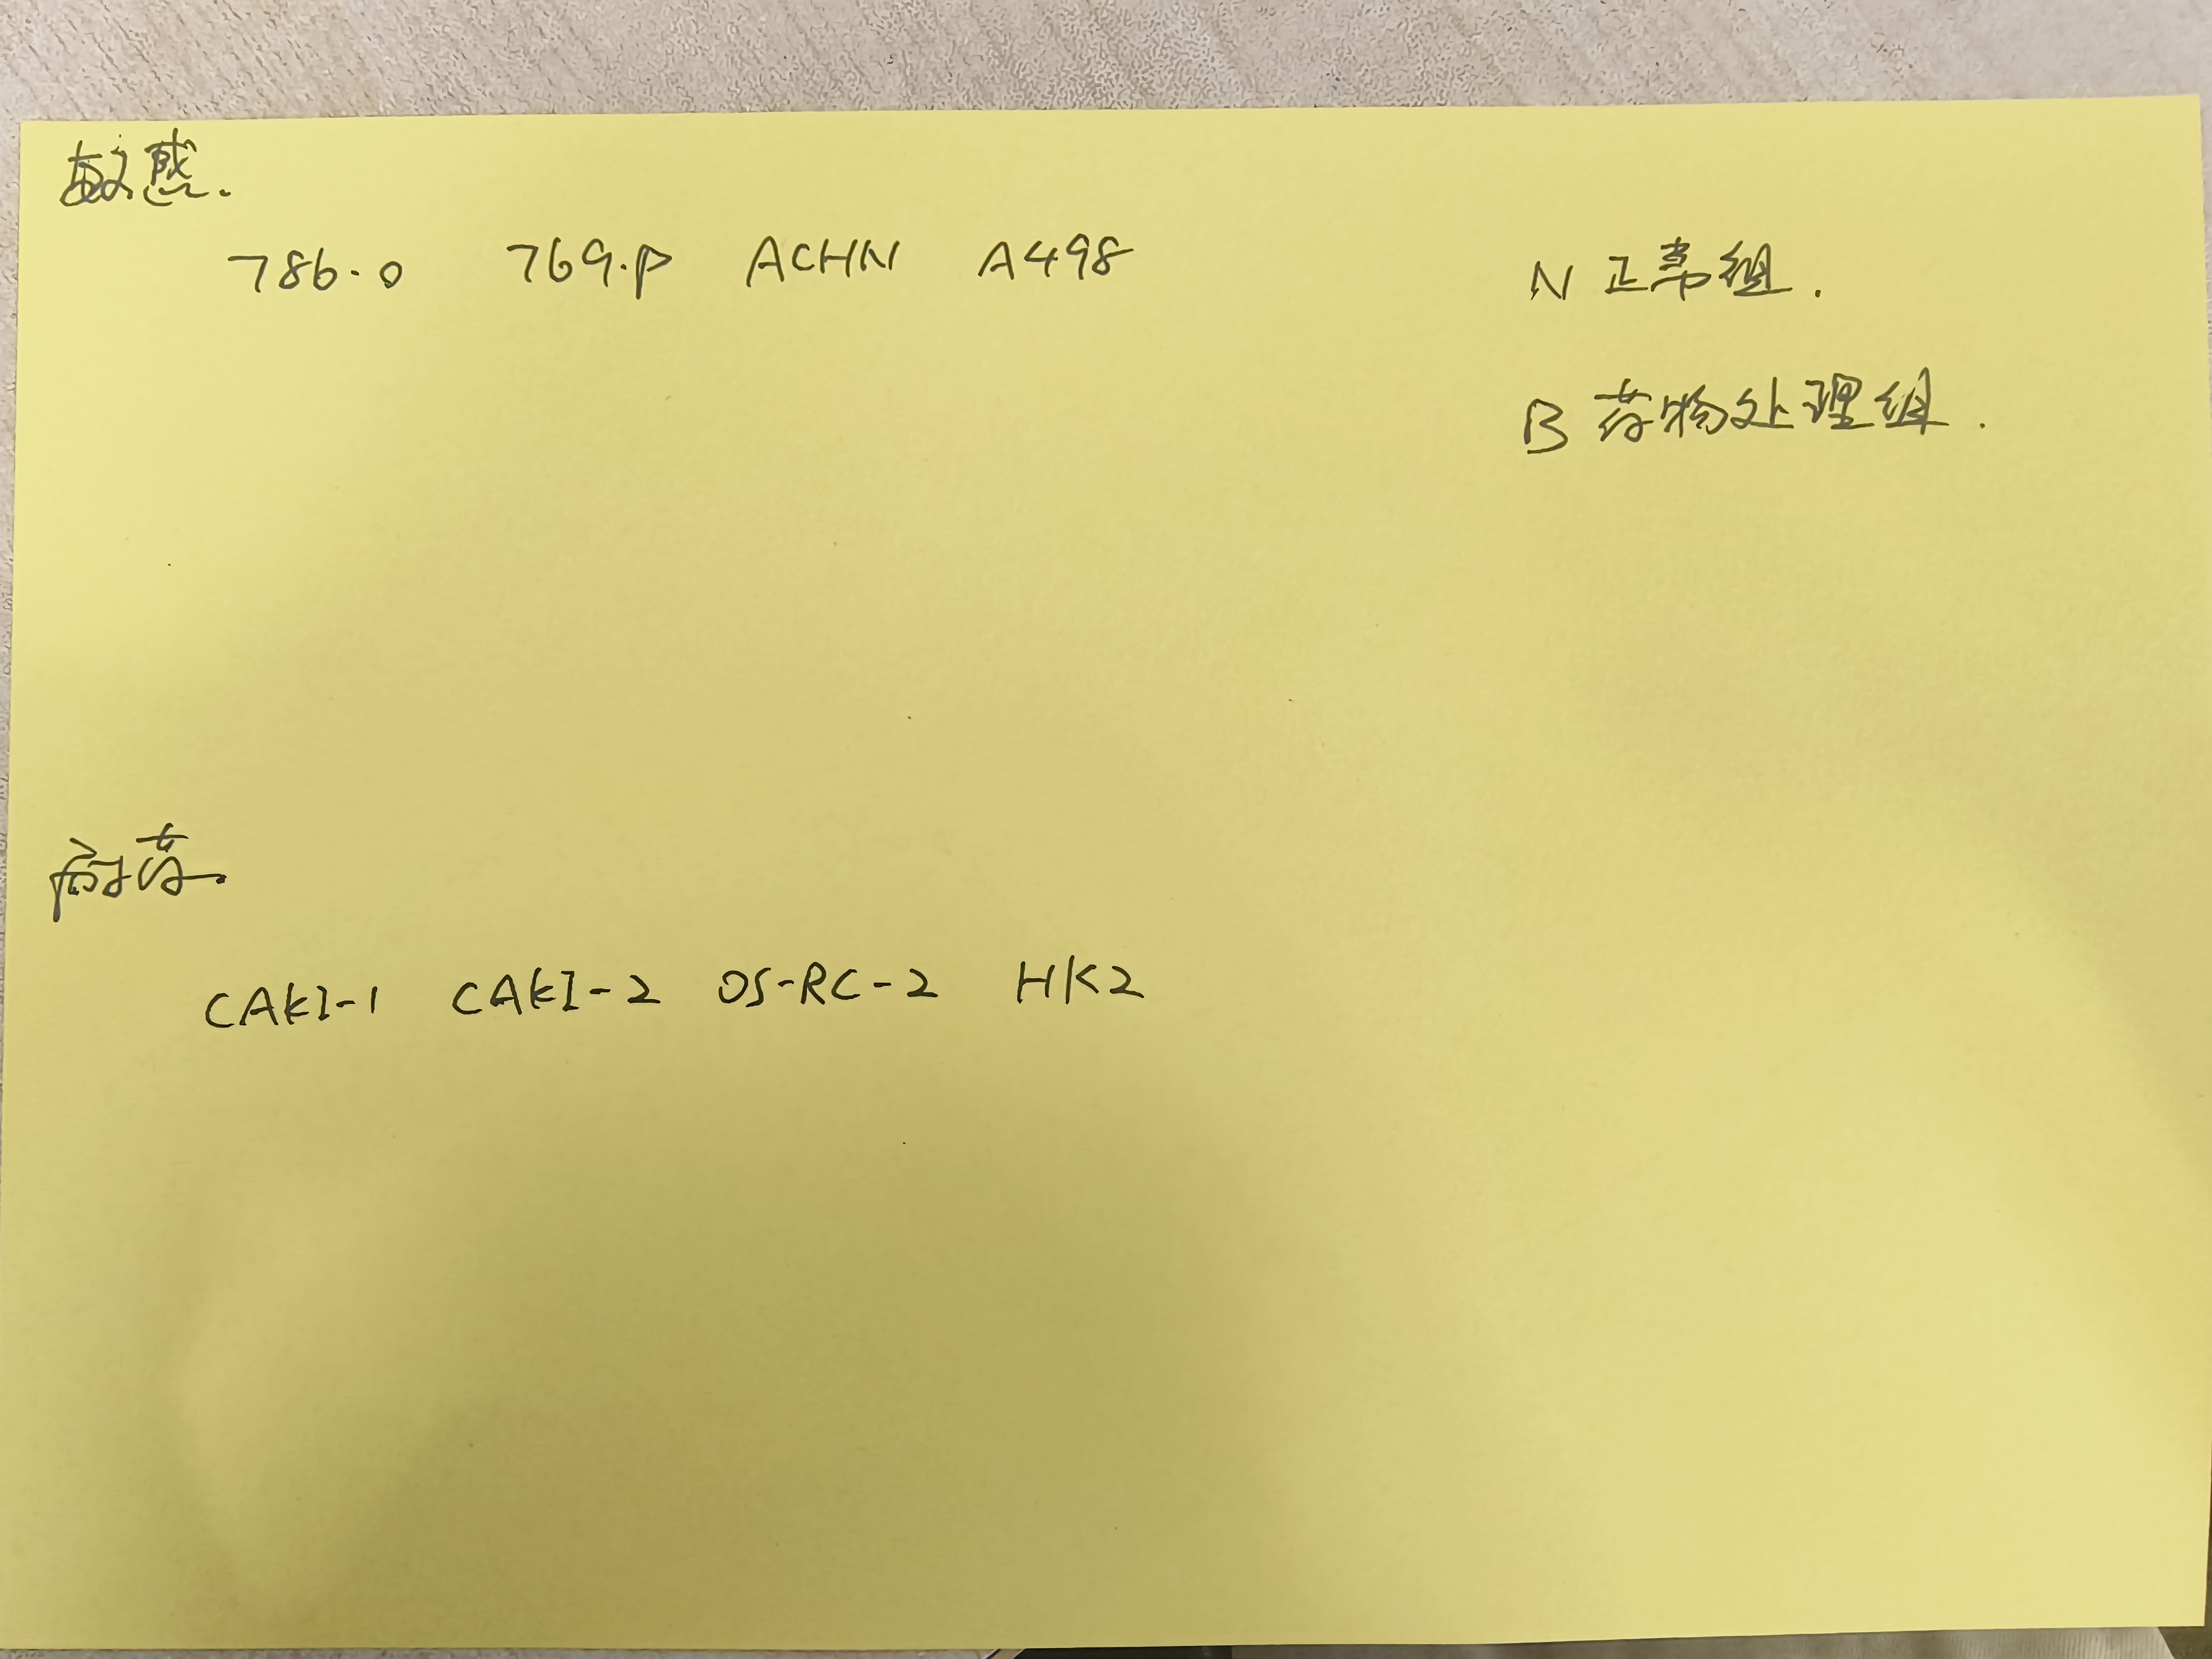 敏感.
786-0 769-P ACHN A498
N 正常组.
B 药物处理组.
耐药.
CAKI-1 CAKI-2 OS-RC-2 HK2